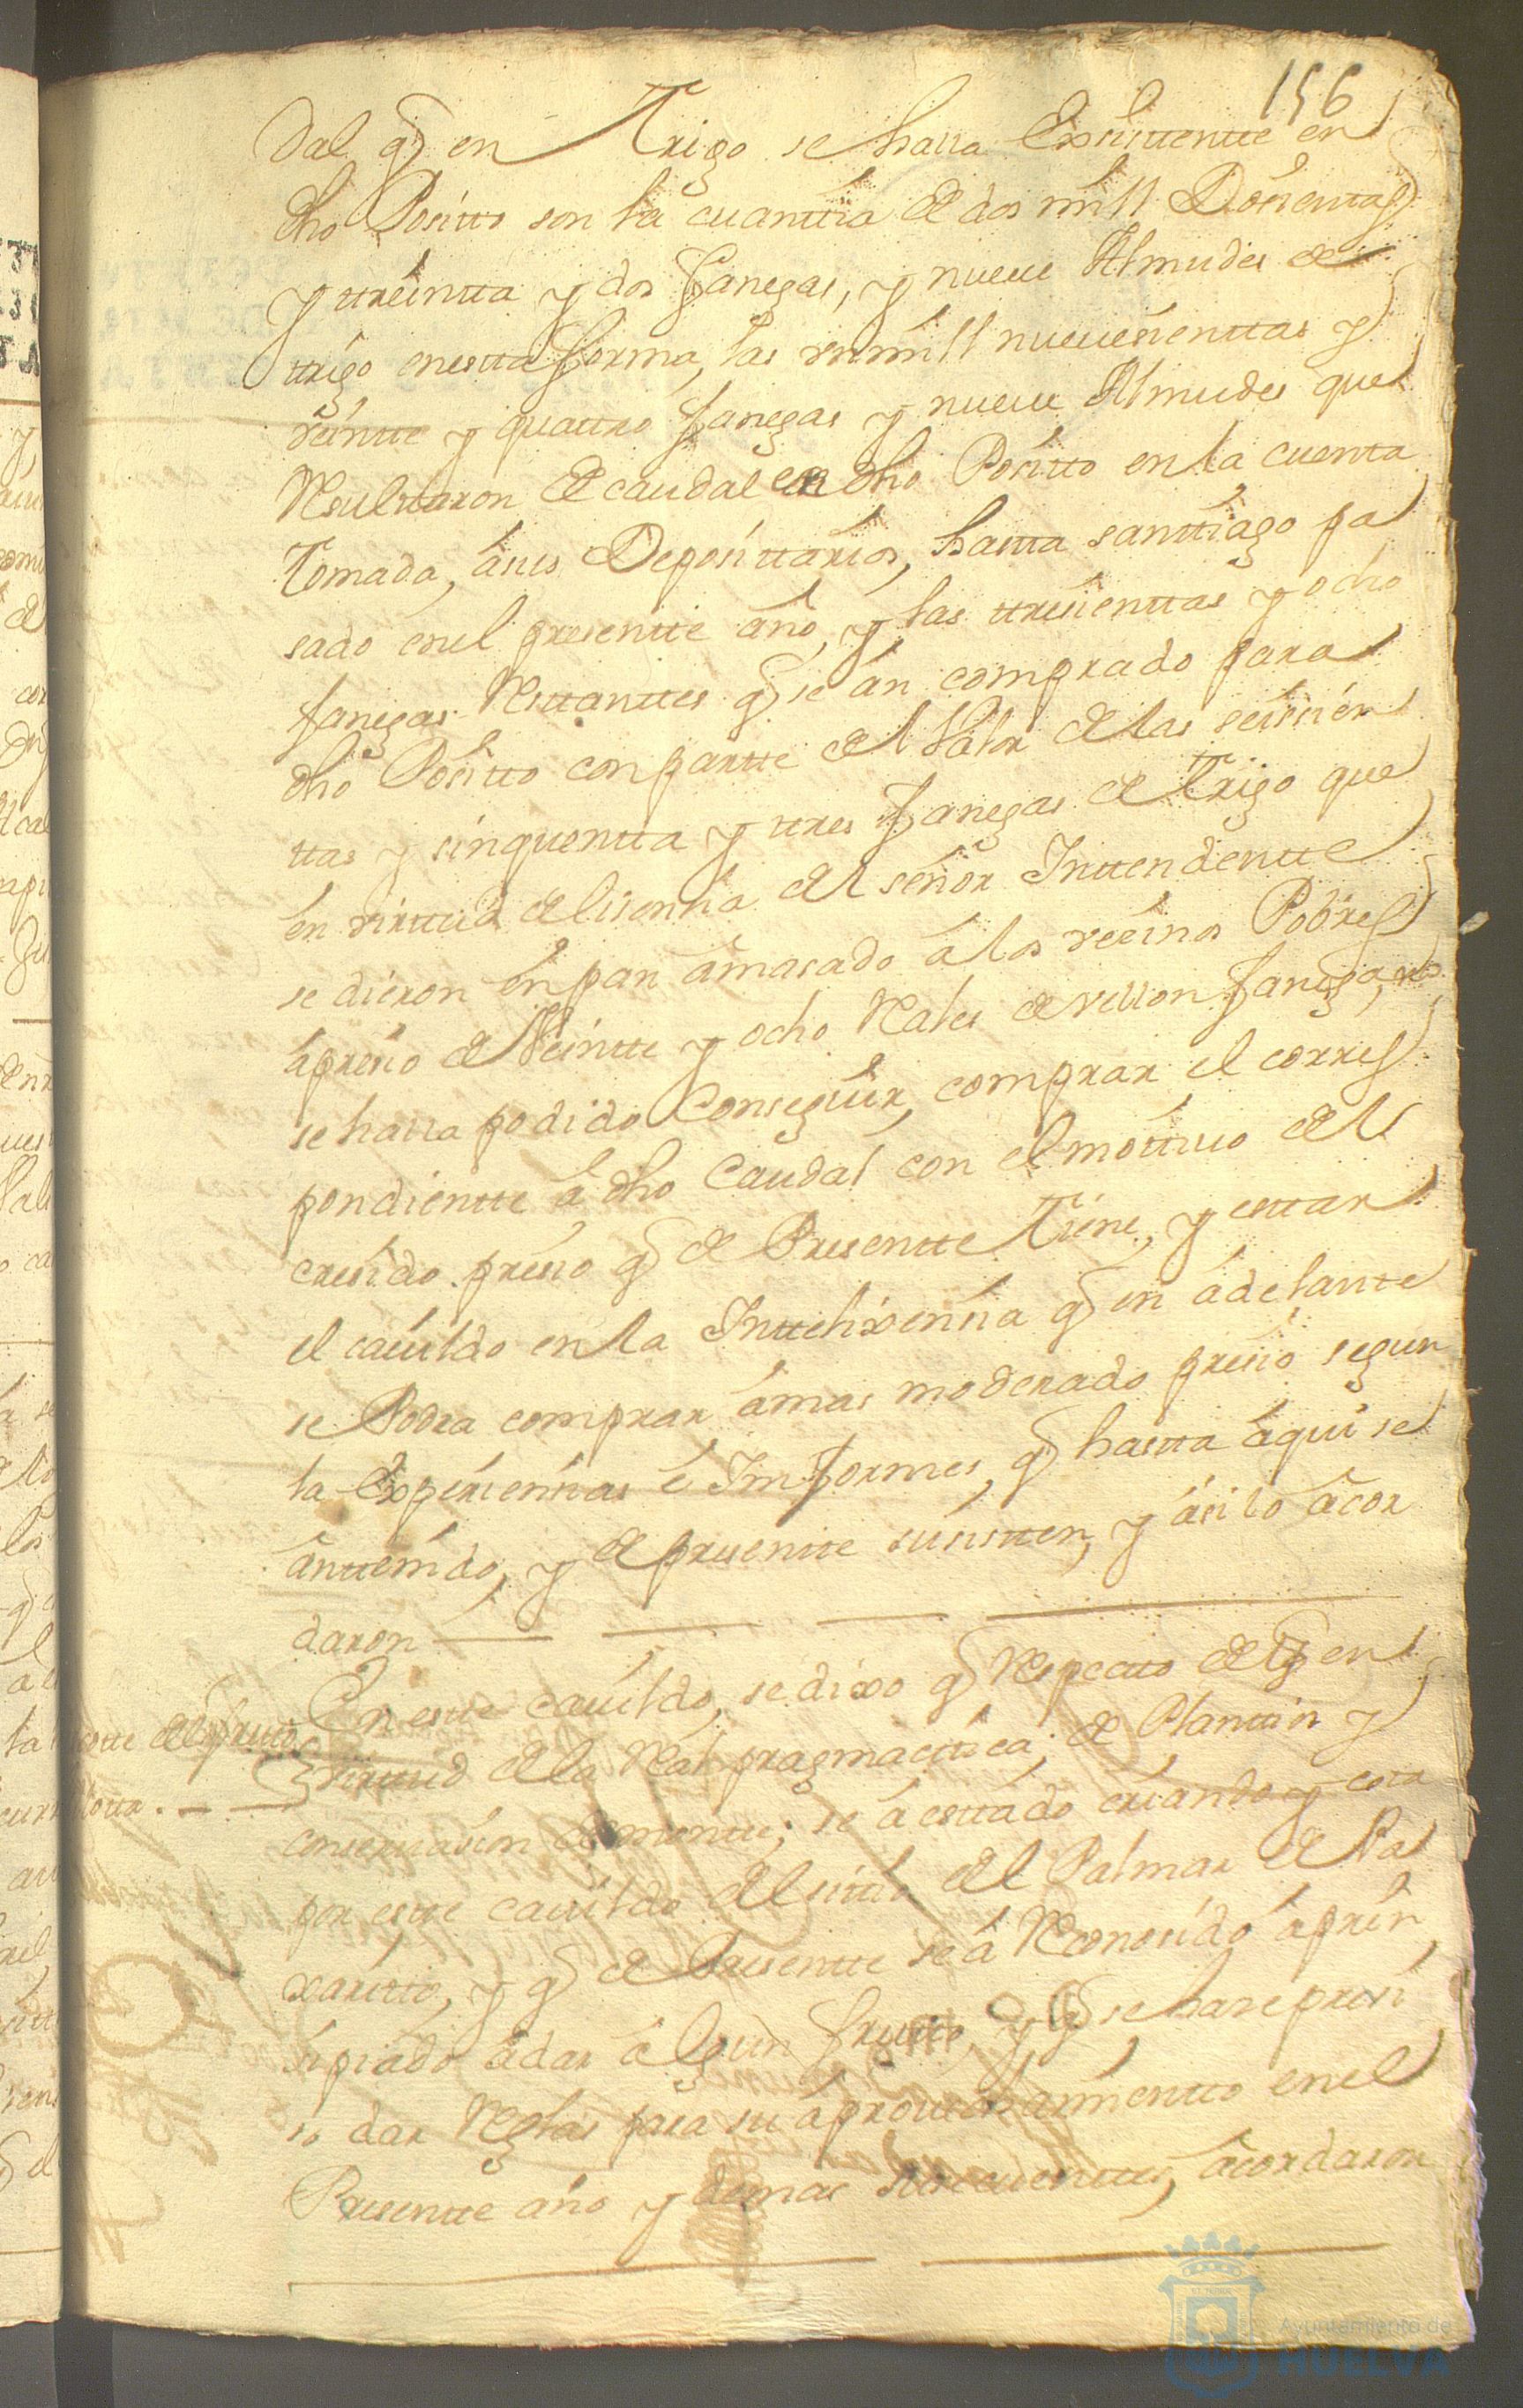 156
dal q̃ en Trigo se halla Existente en
dho Positto son la cuanttia de dos mill Dosientas
y ttreintta y dos fanegas, y nueue Almudes de
ttrigo en estta forma, las un mill nueuesienttas y
veintte y quattro fanegas y nueue Almudes que
Resulttaron de caudal en dho Positto en la cuenta
Tomada, a sus Deposittarios, hastta santtiago pa
sado en el presentte año, y las ttresienttas y ocho
fanegas Restanttes q̃ se an comprado para
dho Positto con partte del Valor de las seissien
ttas y sinquentta y ttres fanegas de Trigo que
en virttud de lisensia del señor Inttendentte
se dieron en pan amasado a los vesinos Pobres
a presio de Veintte y ocho Rales de vellon fanega, no
se halla podido Conseguir, comprar el corres
pondientte a dho Caudal con el mottiuo del
cresido presio q̃ de Presentte Tiene, y estar
el cauildo en la Intteligensia q̃ en adelante
se Podra comprar a mas moderado presio segun
la Experiensias e Imformes, q̃ hastta aqui se
an ttenido, y de presentte susistten, y asi lo acor
daron
En estte cauildo, se dixo q̃ Respecto de q̃ en
virttud de la Real pragmacttica, de Planttin y
conseruasion de montte; se a esttado criando y cota
por estte cauildo el sittio del Palmar de Pa
xaritto, y q̃ de Presentte se a Reconosido a prin
sipiado a dar algun frutto, y q̃ se hase presi
so dar Reglas para su aprouechamientto en el
Presentte año y demas susecuenttes, acordaron
Ayuntamiento de
HUELVA